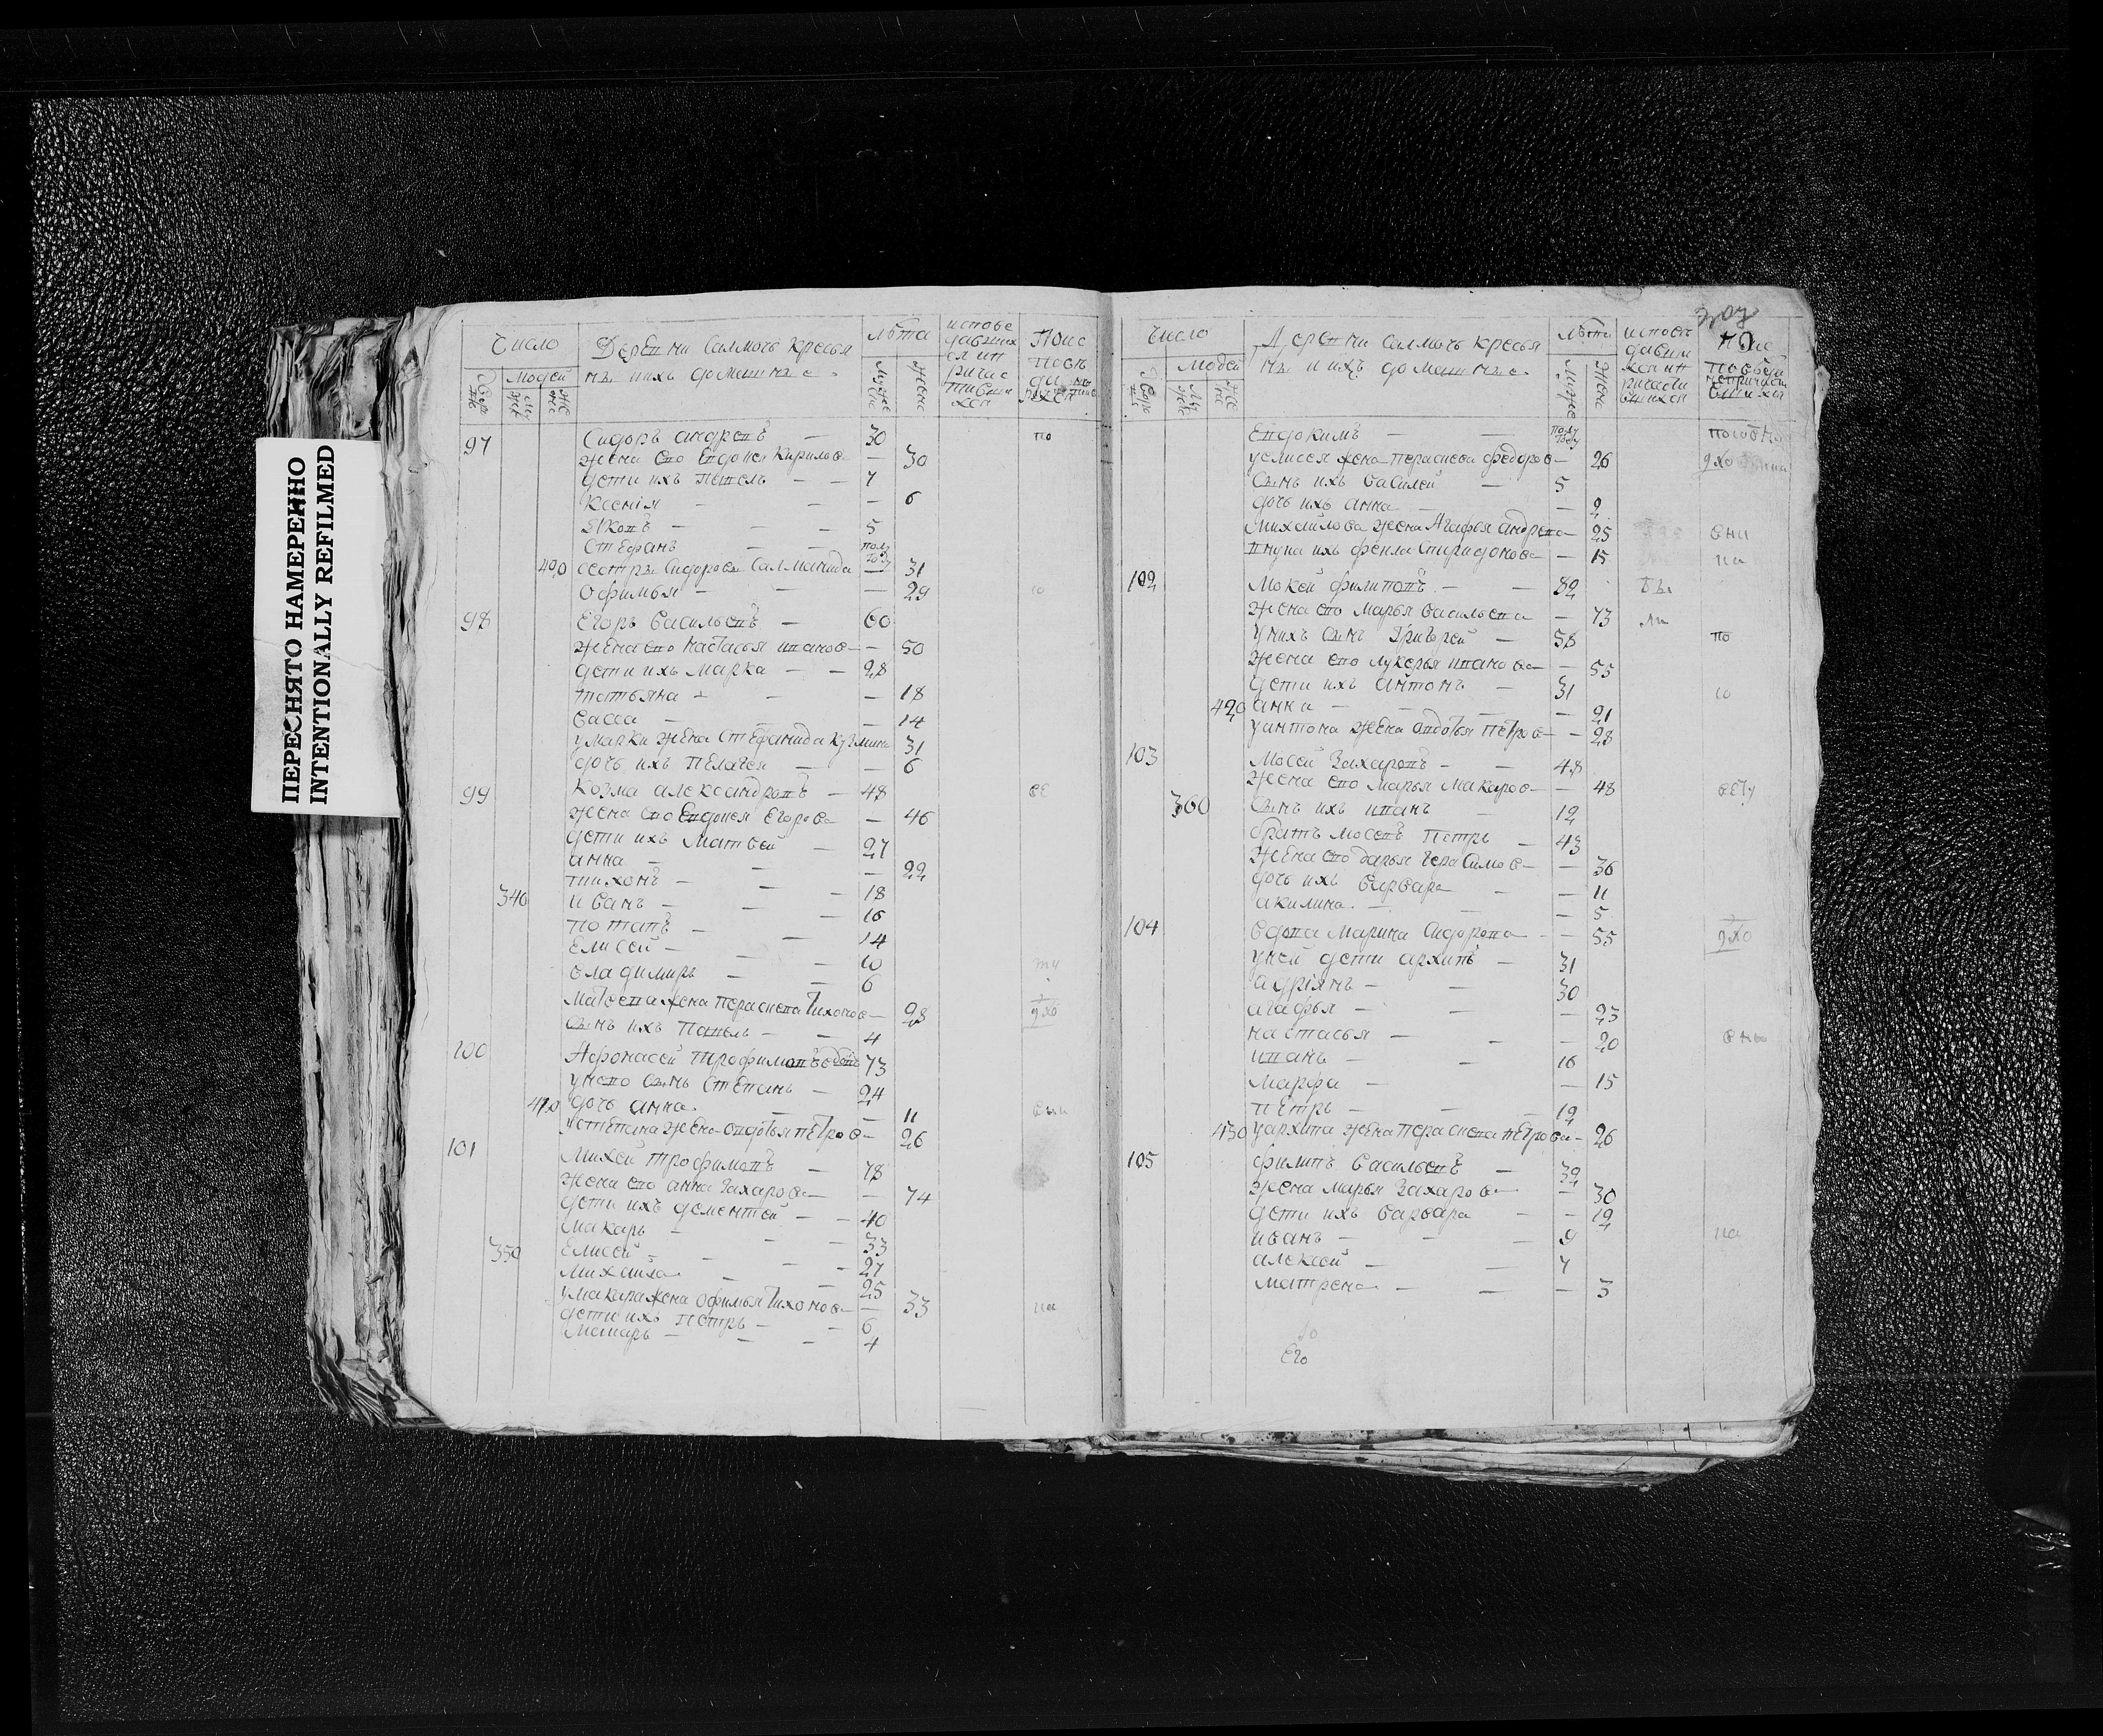 ПЕРЕСНЯТО НАМЕРЕННО
INTENTIONALLY REFILMED
Число
Людей
Деревни Салмочь кресья
не и ихъ домашние
лѣта
97 Сидоръ андреевъ — 30
жена ево Евдокея Кирилова — 30
дети ихъ Павелъ — 7
Ксенія — 6
Яковъ — 5
Стефанъ — полугоду
400 сестры Сидоровы Салманида — 31
Офимья — 29
98 Егоръ Васильевъ — 60
жена ево Настасья иванова — 50
дети ихъ Марка — 28
татьяна — 18
васса — 14
у марки жена Стефанида Кузмина 31
дочь ихъ Пелагея — 6
99 Козма александровъ — 48
жена ево Евдокея Егорова — 46
дети ихъ Матвей — 27
анна — 22
тихонъ — 18
340 иванъ — 16
потапъ — 14
Елисей — 10
владимиръ — 6
Матвева жена Парасковa Тихонова — 28
сынъ ихъ Павелъ — 4
100 Афонасей трофимовъ вдовъ 73
у него сынъ Степанъ — 24
410 дочь анна — 11
у степана жена авдотья петрова — 26
101 Михей трофимовъ — 78
жена ево анна Захарова — 74
дети ихъ дементей — 40
Макаръ — 33
350 Елисей — 27
Михайла — 25
у макара жена Офимья Тихонова — 33
дети ихъ Петръ — 6
Макаръ — 4
Число
Людей
Деревни Салмочь кресья
не и ихъ домашние
лѣта
Евдокимъ — полугоду
у елисея жена Парасковa федорова — 26
Сынъ ихъ Василей — 5
дочь ихъ анна — 2
Михайлова жена Агафья андреева — 25
внука ихъ фекла Спиридонова — 15
102 Мокей филиповъ — 82
жена ево Марья Васильева — 73
у нихъ сынъ Григорей — 58
жена ево лукерья иванова — 55
дети ихъ антонъ — 31
420 анна — 21
у антона жена авдотья петрова — 28
103 Мосей Захаровъ — 48
жена ево марья Макарова — 48
360 сынъ ихъ иванъ — 12
братъ мосеевъ Петръ — 43
жена ево дарья герасимова — 36
дочь ихъ варвара — 11
акилина — 5
104 вдова Марина Сидорова — 55
у ней дети архипъ — 31
адріянъ — 30
агафья — 23
настасья — 20
иванъ — 16
Марфа — 15
петръ — 12
430 у архипа жена Парасковa петрова — 26
105 филипъ Васильевъ — 32
жена Марья Захарова — 30
дети ихъ варвара — 12
иванъ — 9
алексей — 7
матрена — 3
Его